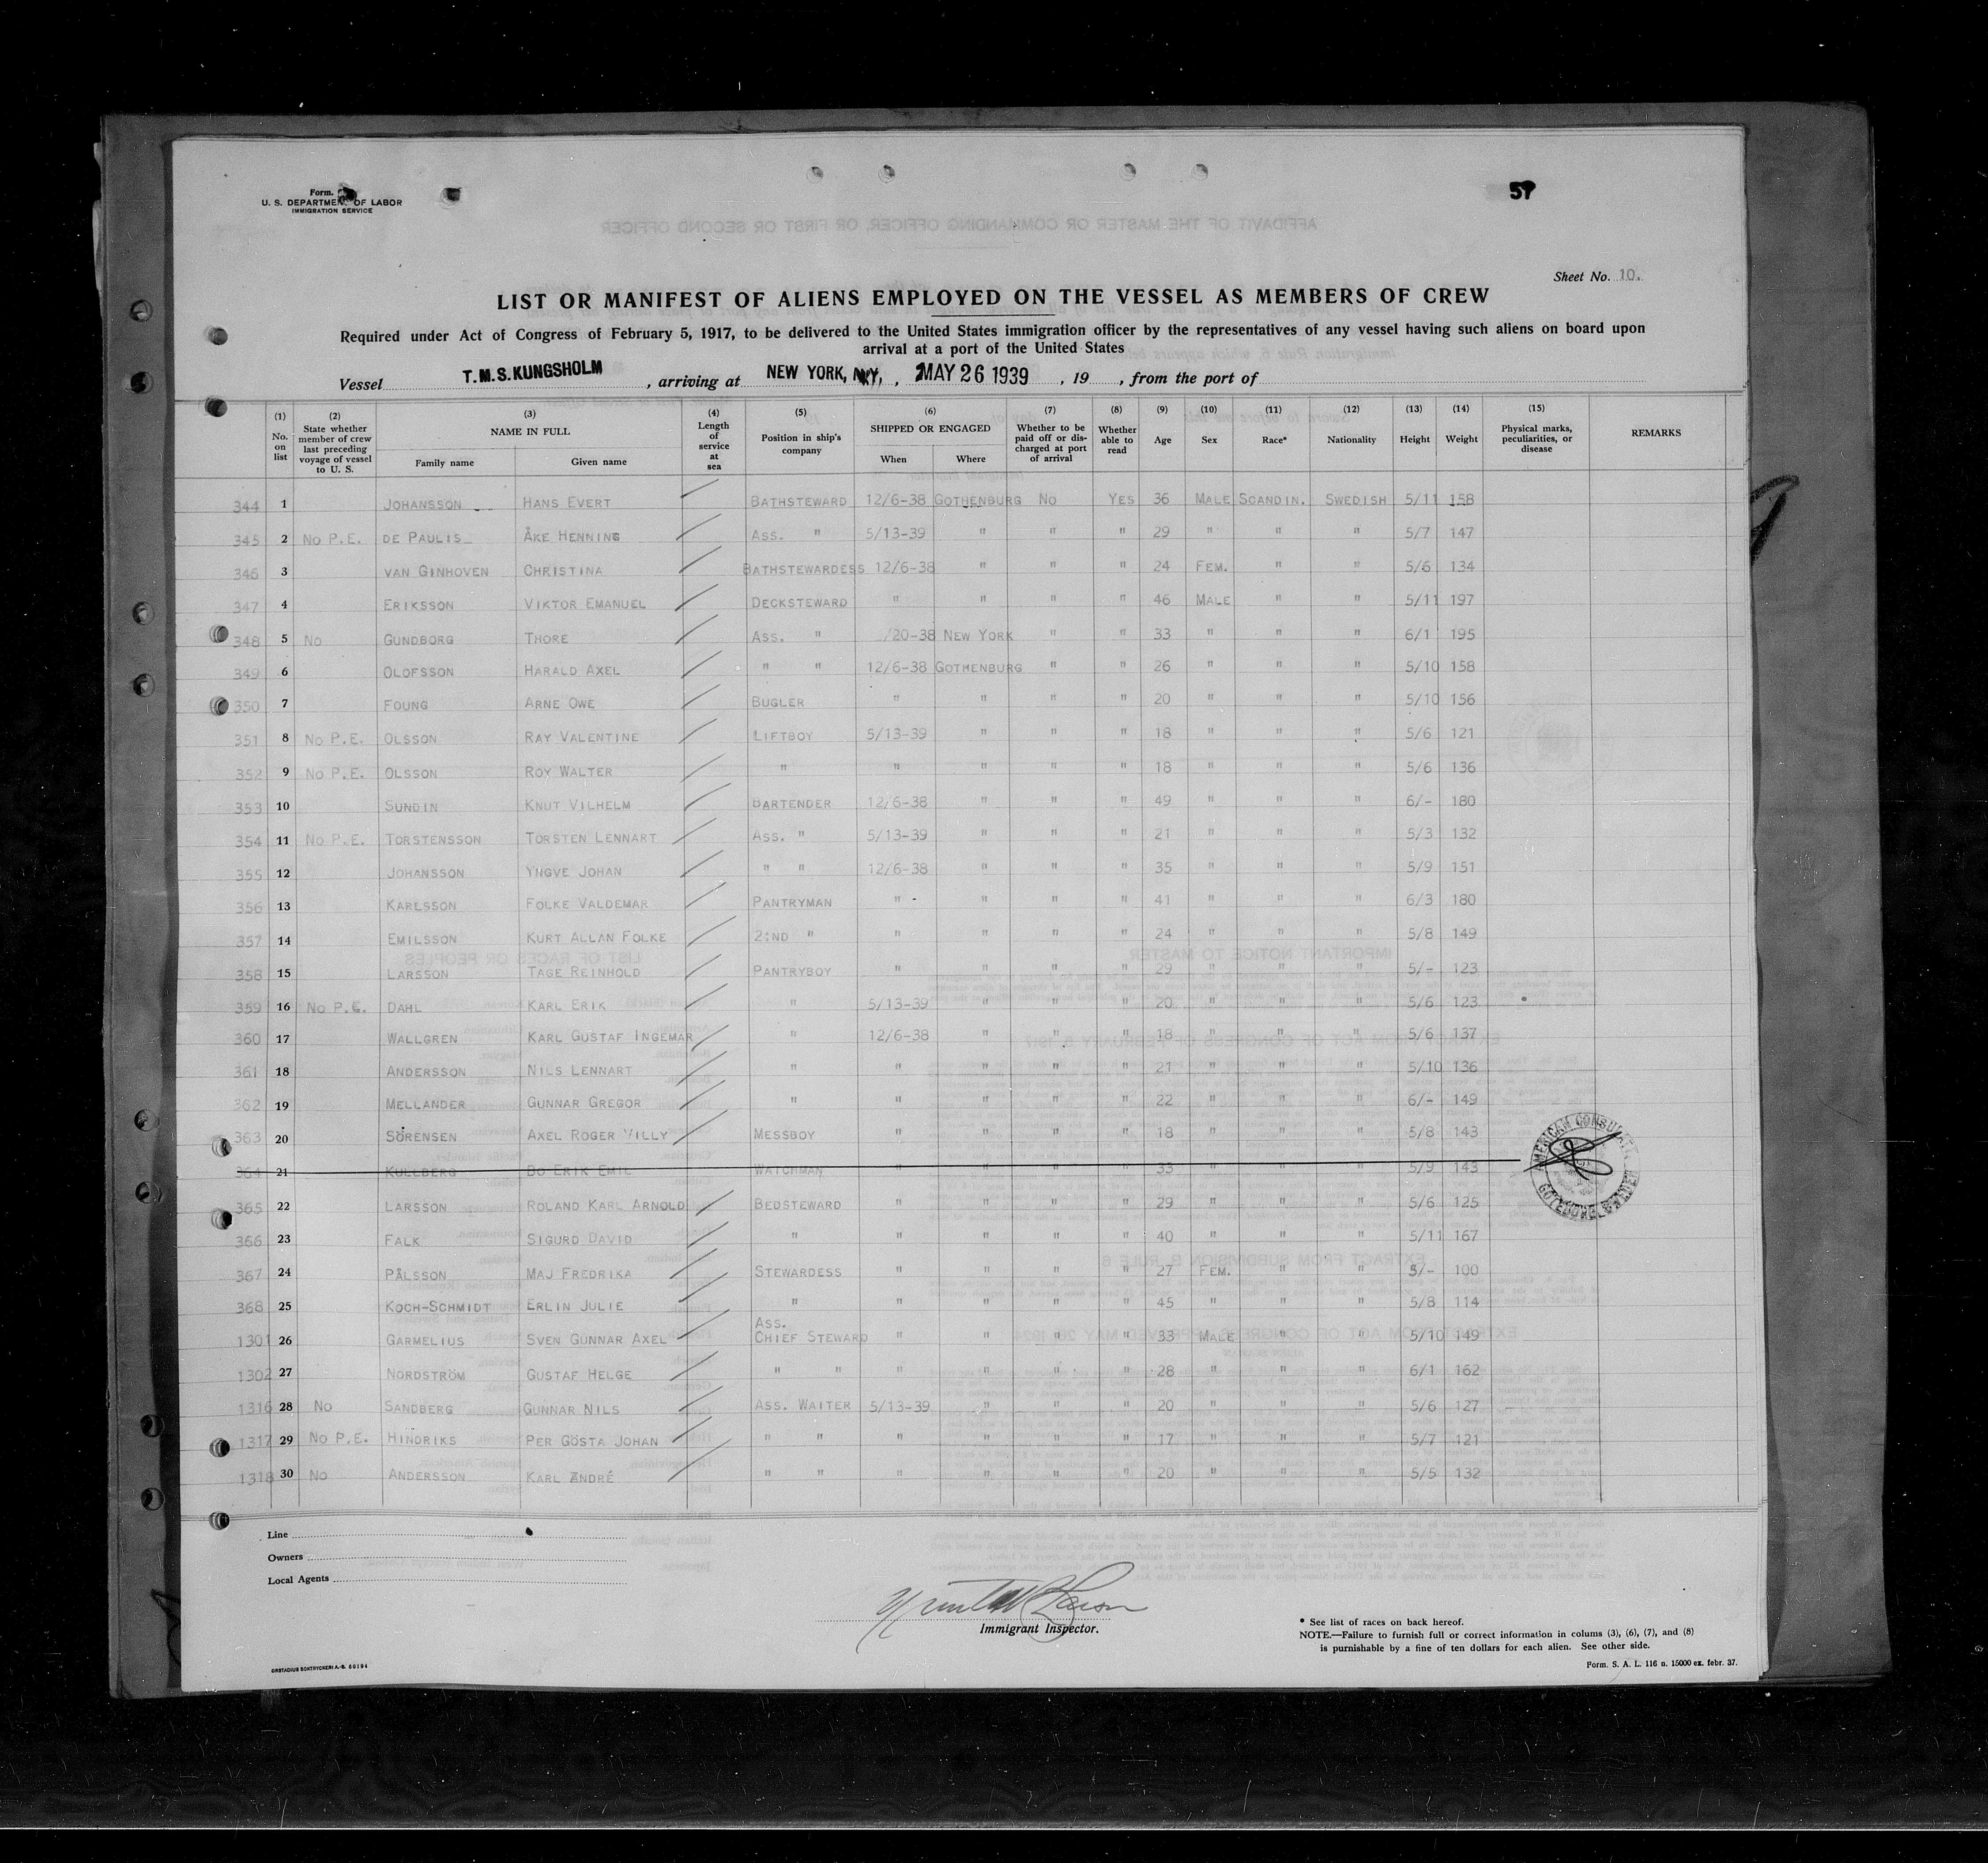 Form.
U. S. DEPARTMENT OF LABOR
IMMIGRATION SERVICE
Sheet No. 10.
LIST OR MANIFEST OF ALIENS EMPLOYED ON THE VESSEL AS MEMBERS OF CREW
Required under Act of Congress of February 5, 1917, to be delivered to the United States immigration officer by the representatives of any vessel having such aliens on board upon
arrival at a port of the United States
Vessel T.M.S. KUNGSHOLM , arriving at NEW YORK, N.Y. , MAY 26 1939 , 19 , from the port of
(1) No. on list (2) State whether member of crew last preceding voyage of vessel to U. S. (3) NAME IN FULL Family name Given name (4) Length of service at sea (5) Position in ship's company (6) SHIPPED OR ENGAGED When Where (7) Whether to be paid off or discharged at port of arrival (8) Whether able to read (9) Age (10) Sex (11) Race* (12) Nationality (13) Height (14) Weight (15) Physical marks, peculiarities, or disease REMARKS
344 1 JOHANSSON HANS EVERT BATHSTEWARD 12/6-38 GOTHENBURG NO YES 36 MALE SCANDIN. SWEDISH 5/11 158
345 2 NO P.E. DE PAULIS ÅKE HENNING ASS. " 5/13-39 " " " 29 " " " 5/7 147
346 3 VAN GINHOVEN CHRISTINA BATHSTEWARDESS 12/6-38 " " " 24 FEM. " " 5/6 134
347 4 ERIKSSON VIKTOR EMANUEL DECKSTEWARD " " " " 46 MALE " " 5/11 197
348 5 NO GUNDBORG THORE ASS. " /20-38 NEW YORK " " 33 " " " 6/1 195
349 6 OLOFSSON HARALD AXEL " " 12/6-38 GOTHENBURG " " 26 " " " 5/10 158
350 7 FOUNG ARNE OWE BUGLER " " " " 20 " " " 5/10 156
351 8 NO P.E. OLSSON RAY VALENTINE LIFTBOY 5/13-39 " " " 18 " " " 5/6 121
352 9 NO P.E. OLSSON ROY WALTER " " " " " 18 " " " 5/6 136
353 10 SUNDIN KNUT VILHELM BARTENDER 12/6-38 " " " 49 " " " 6/- 180
354 11 NO P.E. TORSTENSSON TORSTEN LENNART ASS. " 5/13-39 " " " 21 " " " 5/3 132
355 12 JOHANSSON YNGVE JOHAN " " 12/6-38 " " " 35 " " " 5/9 151
356 13 KARLSSON FOLKE VALDEMAR PANTRYMAN " " " " 41 " " " 6/3 180
357 14 EMILSSON KURT ALLAN FOLKE 2:ND " " " " " 24 " " " 5/8 149
358 15 LARSSON TAGE REINHOLD PANTRYBOY " " " " 29 " " " 5/- 123
359 16 NO P.E. DAHL KARL ERIK " 5/13-39 " " " 20 " " " 5/6 123
360 17 WALLGREN KARL GUSTAF INGEMAR " 12/6-38 " " " 18 " " " 5/6 137
361 18 ANDERSSON NILS LENNART " " " " " 21 " " " 5/10 136
362 19 MELLANDER GUNNAR GREGOR " " " " " 22 " " " 6/- 149
363 20 SÖRENSEN AXEL ROGER VILLY MESSBOY " " " " 18 " " " 5/8 143
364 21 KULLBERG BO ERIK EMIL WATCHMAN " " " " 33 " " " 5/9 143
AMERICAN CONSULATE GOTEBORG, SWEDEN
365 22 LARSSON ROLAND KARL ARNOLD BEDSTEWARD " " " " 29 " " " 5/6 125
366 23 FALK SIGURD DAVID " " " " " 40 " " " 5/11 167
367 24 PÅLSSON MAJ FREDRIKA STEWARDESS " " " " 27 FEM. " " 5/- 100
368 25 KOCH-SCHMIDT ERLIN JULIE " " " " " 45 " " " 5/8 114
1301 26 GARMELIUS SVEN GUNNAR AXEL ASS. CHIEF STEWARD " " " " 33 MALE " " 5/10 149
1302 27 NORDSTRÖM GUSTAF HELGE " " " " " " 28 " " " 6/1 162
1316 28 NO SANDBERG GUNNAR NILS ASS. WAITER 5/13-39 " " " 20 " " " 5/6 127
1317 29 NO P.E. HINDRIKS PER GÖSTA JOHAN " " " " " " 17 " " " 5/7 121
1318 30 NO ANDERSSON KARL ANDRÉ " " " " " " 20 " " " 5/5 132
Line
Owners
Local Agents
Immigrant Inspector.
* See list of races on back hereof.
NOTE.—Failure to furnish full or correct information in colums (3), (6), (7), and (8)
is punishable by a fine of ten dollars for each alien. See other side.
Form. S. A. L. 116 n. 15000 ex. febr. 37.